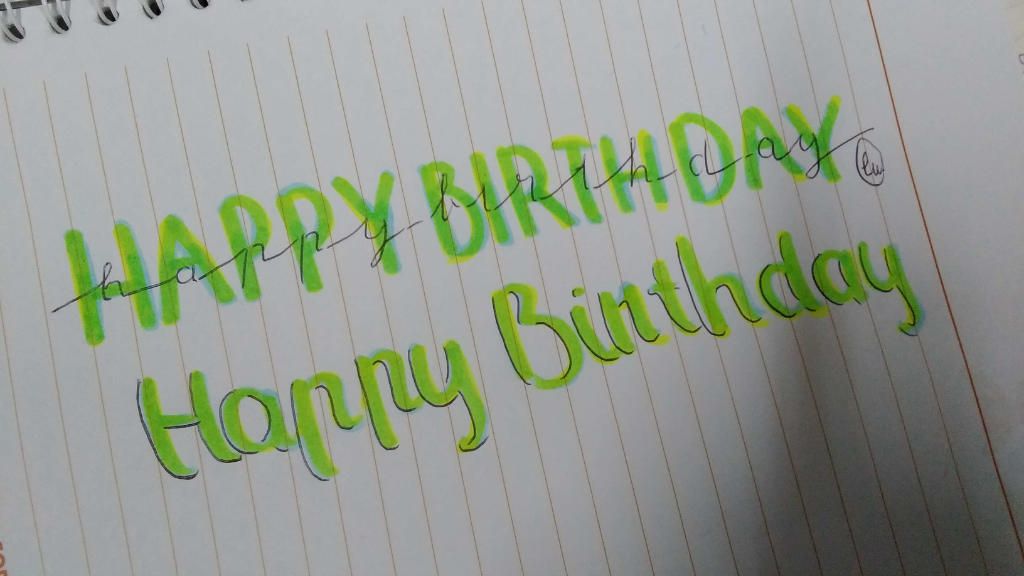 HAPPY BIRTHDAY
happy birthday
Happy Birthday